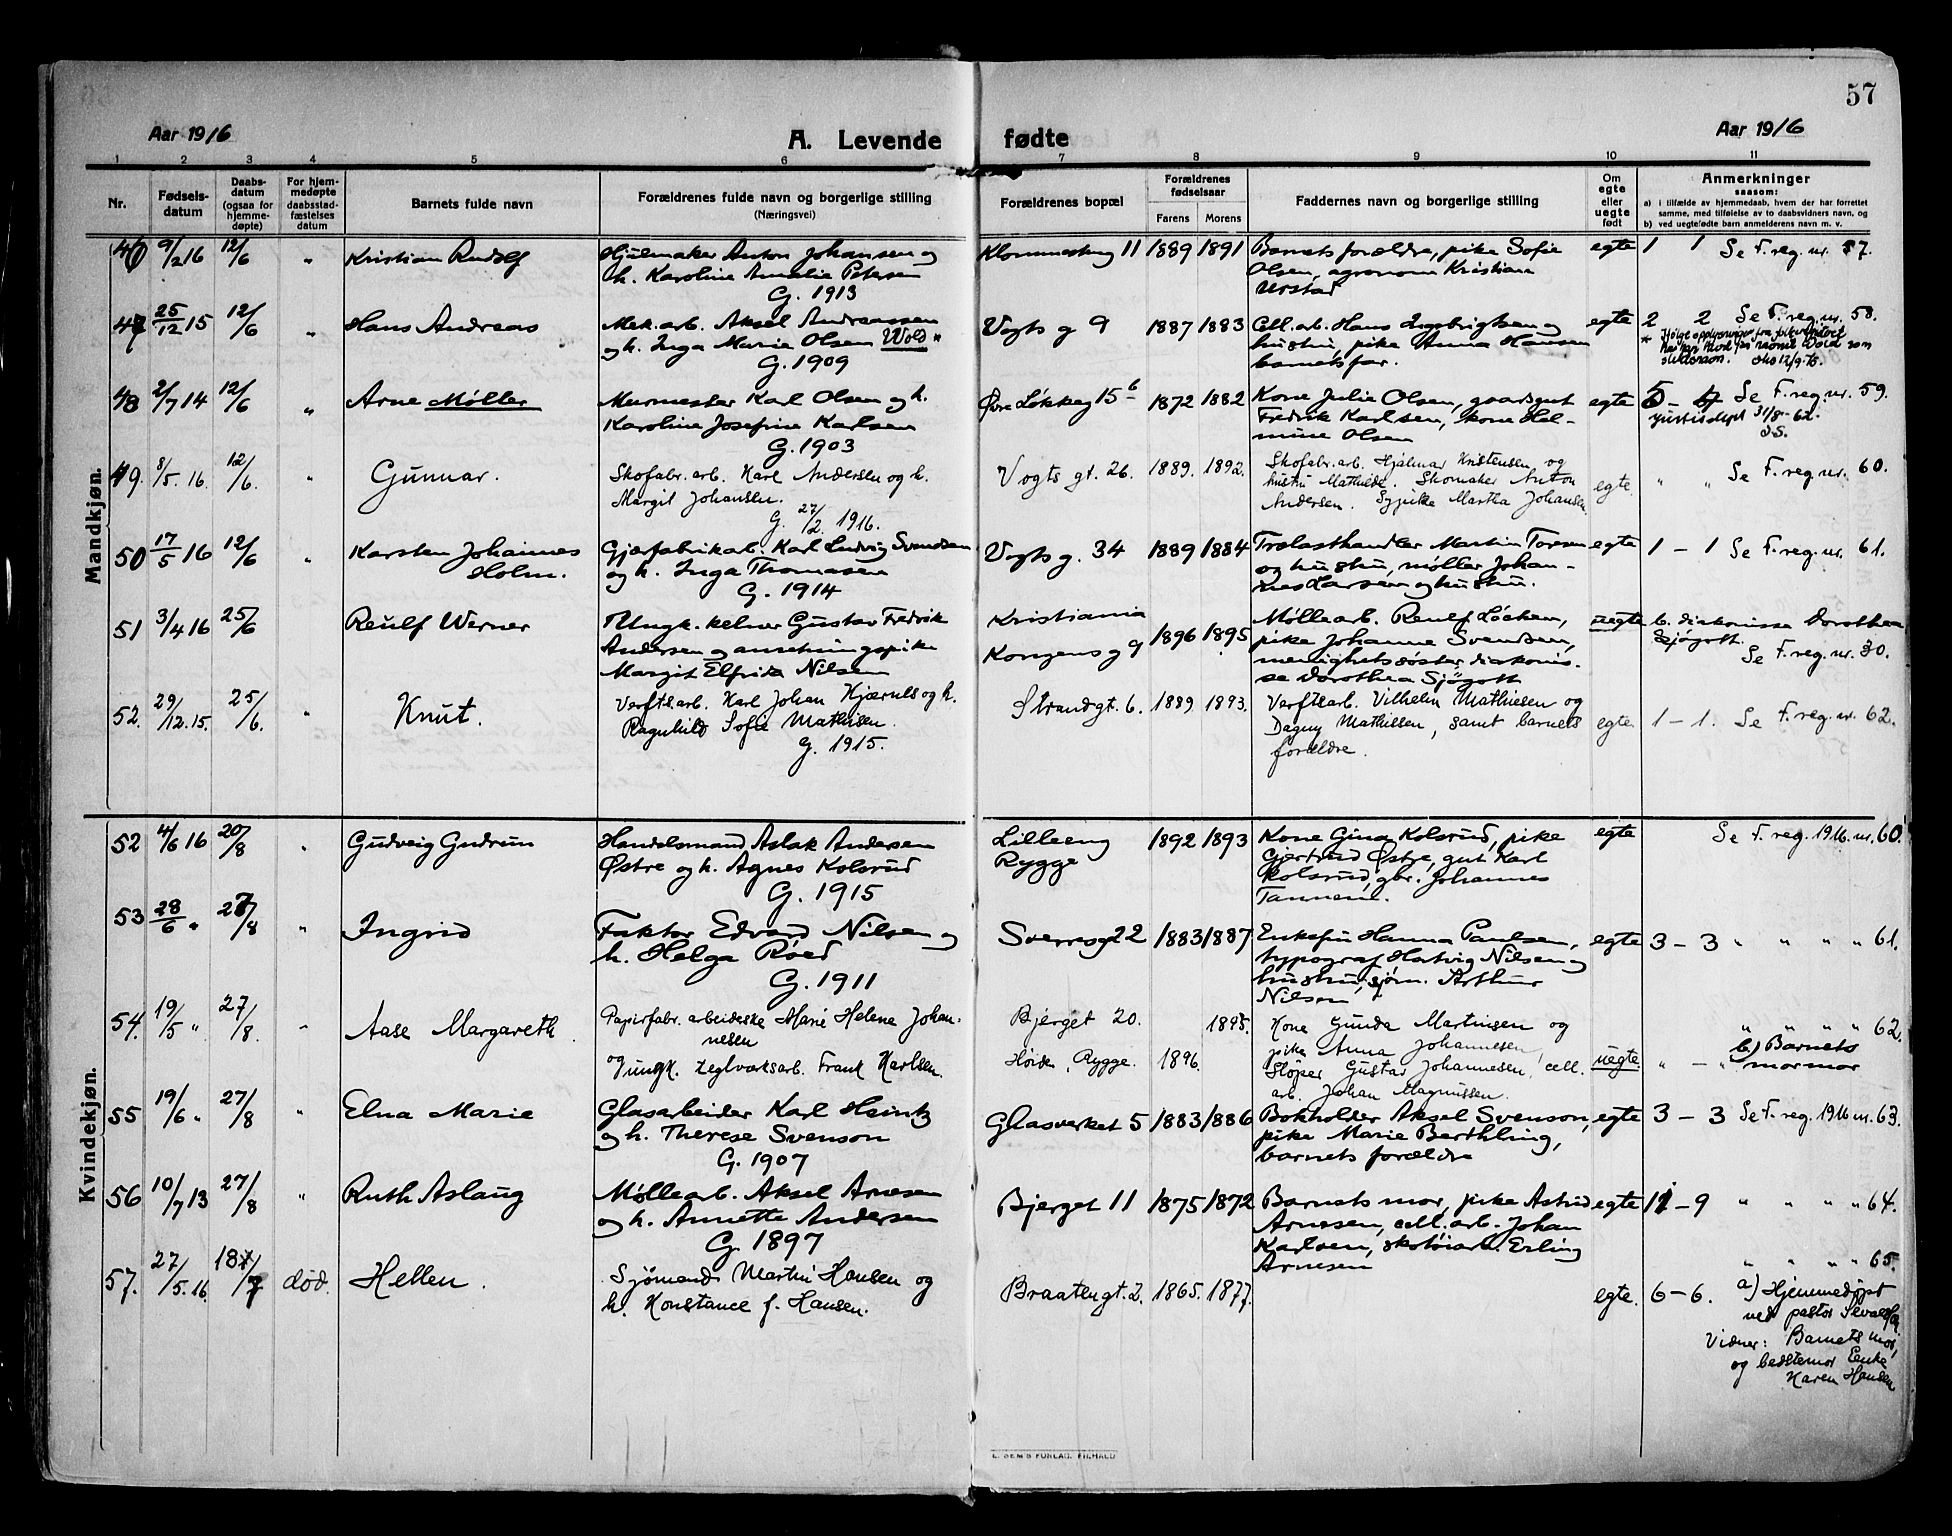 57
Aar 1916
A. Levende fødte
Aar 1916
1 2 3 4 5 6 7 8 9 10 11
Nr.
Fødsels-
datum
Daabs-
datum
(ogsaa for
hjemme-
døpte)
For hjem-
medøpte
daabsstad-
fæstelses
datum
Barnets fulde navn
Forældrenes fulde navn og borgerlige stilling
(Næringsvei)
Forældrenes bopæl
Forældrenes
fødselsaar
Farens Morens
Faddernes navn og borgerlige stilling
Om
egte
eller
uegte
født
Anmerkninger
saasom:
a) i tilfælde av hjemmedaab, hvem der har forrettet
samme, med tilføielse av to daabsvidners navn, og
b) ved uegtefødte barn anmelderens navn m. v.
Mandkjøn.
46 9/2 16 12/6 „ Kristian Rudolf
Hjulmaker Anton Johansen og
h. Karoline Amalie Petersen
G. 1913
11 1889 1891
Barnets forældre, pike Sofie
Olsen, agronom Kristian
Urstad
egte 1 1 Se F. reg. nr. 57.
47 25/12 15 12/6 „ Hans Andreas
Mek. arb. Aksel Andreassen
og h. Inga Marie Olsen Wold *
G. 1909
Vogts g 9 1887 1883
Cell. arb. Hans Ingebrigtsen og
hustru, pike Anna Hansen
barnets far.
egte 2 2 Se F. reg. nr. 58.
* Ifølge opplysninger fra folkeregistret
har han navnet Wold som
slektsnavn.
48 2/7 14 12/6 „ Arne Møller
Murmester Karl Olsen og h.
Karoline Josefine Karlsen
G. 1903
Øvre Løkkeg 15 b 1872 1882
Kone Julie Olsen, gaardsgut
Fredrik Karlsen, kone Hel-
mine Olsen
egte 5 - Se F. reg. nr. 59.
Justisdept 31/8 - 62.
49. 8/5. 16. 12/6. „ Gunnar.
Skofabr. arb. Karl Andersen og h.
Margit Johansen.
G. 27/2. 1916.
Vogts gt. 26. 1889. 1892.
Skofabr. arb. Hjalmar Kristensen og
hustru Mathilde. Skomaker Anton
Andersen. Sypike Martha Johansen
egte. „ „ Se F. reg. nr. 60.
50 17/5 16 12/6 „ Karsten Johannes
Holm.
Gjærfabrikarb. Karl Ludvig Svendsen
og h. Inga Thomasen
G. 1914
Vogts g. 34 1889 1884
Trælasthandler Martin Torsen
og hustru, møller Johan-
nes Larsen og hustru.
egte 1 - 1 Se F. reg. nr. 61.
51 3/4 16 25/6 Reulf Werner
Ungk. kelner Gustav Fredrik
Andersen og anretningspike
Margit Elfrida Nilsen
Kristiania
Kongens g 9
1896 1895
Møllearb. Reulf Løcken,
pike Johanne Svendsen,
menighetssøster, diakonis-
se Dorothea Sjögott
uegte b. diakonisse Dorothea
Sjögott.
Se F. reg. nr. 30.
52. 29/12. 15. 25/6. „ Knut.
Verftsarb. Karl Johan Kjærnes og h.
Ragnhild Sofie Mathisen.
G. 1915.
Strandgt. 6. 1889. 1893.
Verftsarb. Vilhelm Mathiesen og
Dagny Mathissen, samt barnets
forældre.
egte. 1 - 1. Se F. reg. nr. 62.
Kvindekjøn.
52 4/6 16 20/8 „ Gudveig Gudrun
Handelsmand Aslak Andersen
Østre og h. Agnes Kolsrud
G. 1915
Lilleeng
Rygge
1892 1893
Kone Gina Kolsrud, pike
Gjertrud Østre, gut Karl
Kolsrud, gbr. Johannes
Tannem.
egte Se F. reg. 1916 nr. 60.
53 28/6 „ 27/8 „ Ingrid
Faktor Edvard Nilsen og
h. Helga Röed
G. 1911
Sverresg 22 1883 1887
Enkefru Hanna Paulsen,
typograf Hartvig Nilsen og
hustru, sjøm. Arthur
Nilsen
egte 3 - 3 „ „ „ „ 61.
54. 19/5 „ 27/8. „ Aase Margareth.
Papirfabr. arbeiderske Marie Helene Johan-
nesen
og ungk. teglverksarb. Frank Karlsen.
Bjerget 20. 1895.
Høiden, Rygge. 1896.
Kone Gunda Martinsen og
pike Anna Johannesen,
Sløper Gustav Johannesen, cell.
arb. Johan Magnussen.
uegte. „ - „ „ „ „ „ 62.
b) Barnets
mormor
55 19/6 „ 27/8 „ Elna Marie
Glasarbeider Karl Heintz
og h. Therese Svenson
G. 1907
Glasverket 5 1883 1886
Bokholder Aksel Svenson,
pike Marie Berthling,
barnets forældre
egte 3 - 3 Se F. reg. 1916 nr. 63.
56 10/7 13 27/8 „ Ruth Aslaug
Møllearb. Aksel Arnesen
og h. Annette Andersen
G. 1897
Bjerget 11 1875 1872
Barnets mor, pike Astrid
Arnesen, cell. arb. Johan
Karlsen, skotøiarb. Erling
Arnesen
egte 11 - 9 „ „ „ „ 64.
57. 27/5. 16. 18/7 død. Hellen.
Sjömand Martin Hansen og
h. Konstance f. Hansen.
Braatengt. 2. 1865. 1877.
egte. 6 - 6. „ „ „ „ 65.
a) Hjemmedøpt
ved pastor
Vidner: Barnets mor,
og bedstemor Enke
Karen Hansen
E. SEM'S FORLAG. FR.HALD